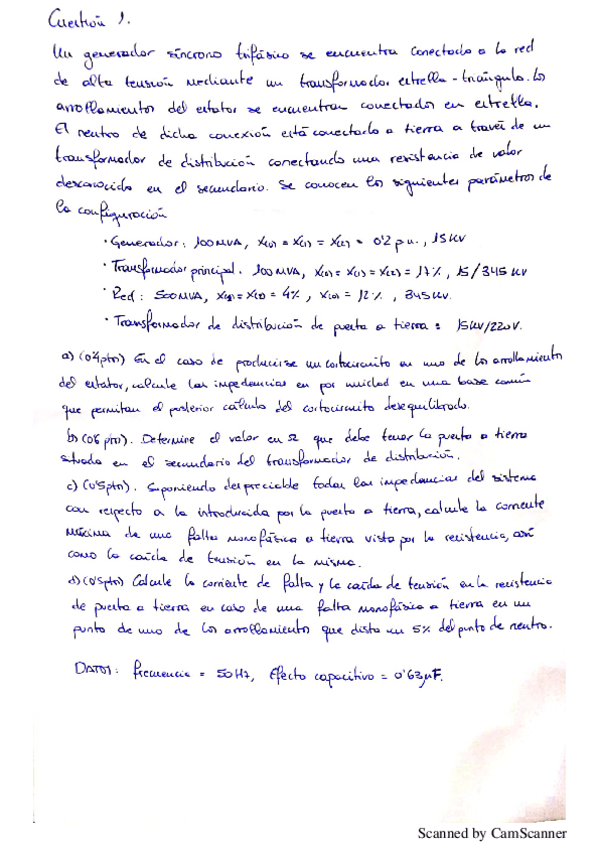 Cuestión 1.
Un generador síncrono trifásico se encuentra conectado a la red
de alta tensión mediante un transformador estrella-triángulo. Los
arrollamientos del estator se encuentran conectados en estrella.
El neutro de dicha conexión está conectado a tierra a través de un
transformador de distribución conectando una resistencia de valor
desconocido en el secundario. Se conocen los siguientes parámetros de
la configuración
· Generador: 100MVA, X(1) = X(2) = 0'2 p.u., 15KV
· Transformador principal. 100MVA, X(0) = X(1) = X(2) = 17%, 15/345 KV
· Red: 500MVA, X(1) = X(2) = 4%, X(0) = 12%, 345KV.
· Transformador de distribución de puesta a tierra: 15KV/220V.
a) (0'4ptos) En el caso de producirse un cortocircuito en uno de los arrollamientos
del estator, calcule las impedancias en por unidad en una base común
que permitan el posterior cálculo del cortocircuito desequilibrado.
b) (0'6 ptos). Determine el valor en Ω que debe tener la puesta a tierra
situada en el secundario del transformador de distribución.
c) (0'5ptos). Suponiendo despreciable todas las impedancias del sistema
con respecto a la introducida por la puesta a tierra, calcule la corriente
máxima de una falta monofásica a tierra vista por la resistencia, así
como la caída de tensión en la misma.
d) (0'5ptos) Calcule la corriente de falta y la caída de tensión en la resistencia
de puesta a tierra en caso de una falta monofásica a tierra en un
punto de uno de los arrollamientos que dista un 5% del punto de neutro.
DATOS: frecuencia = 50Hz, Efecto capacitivo = 0'63μF.
Scanned by CamScanner